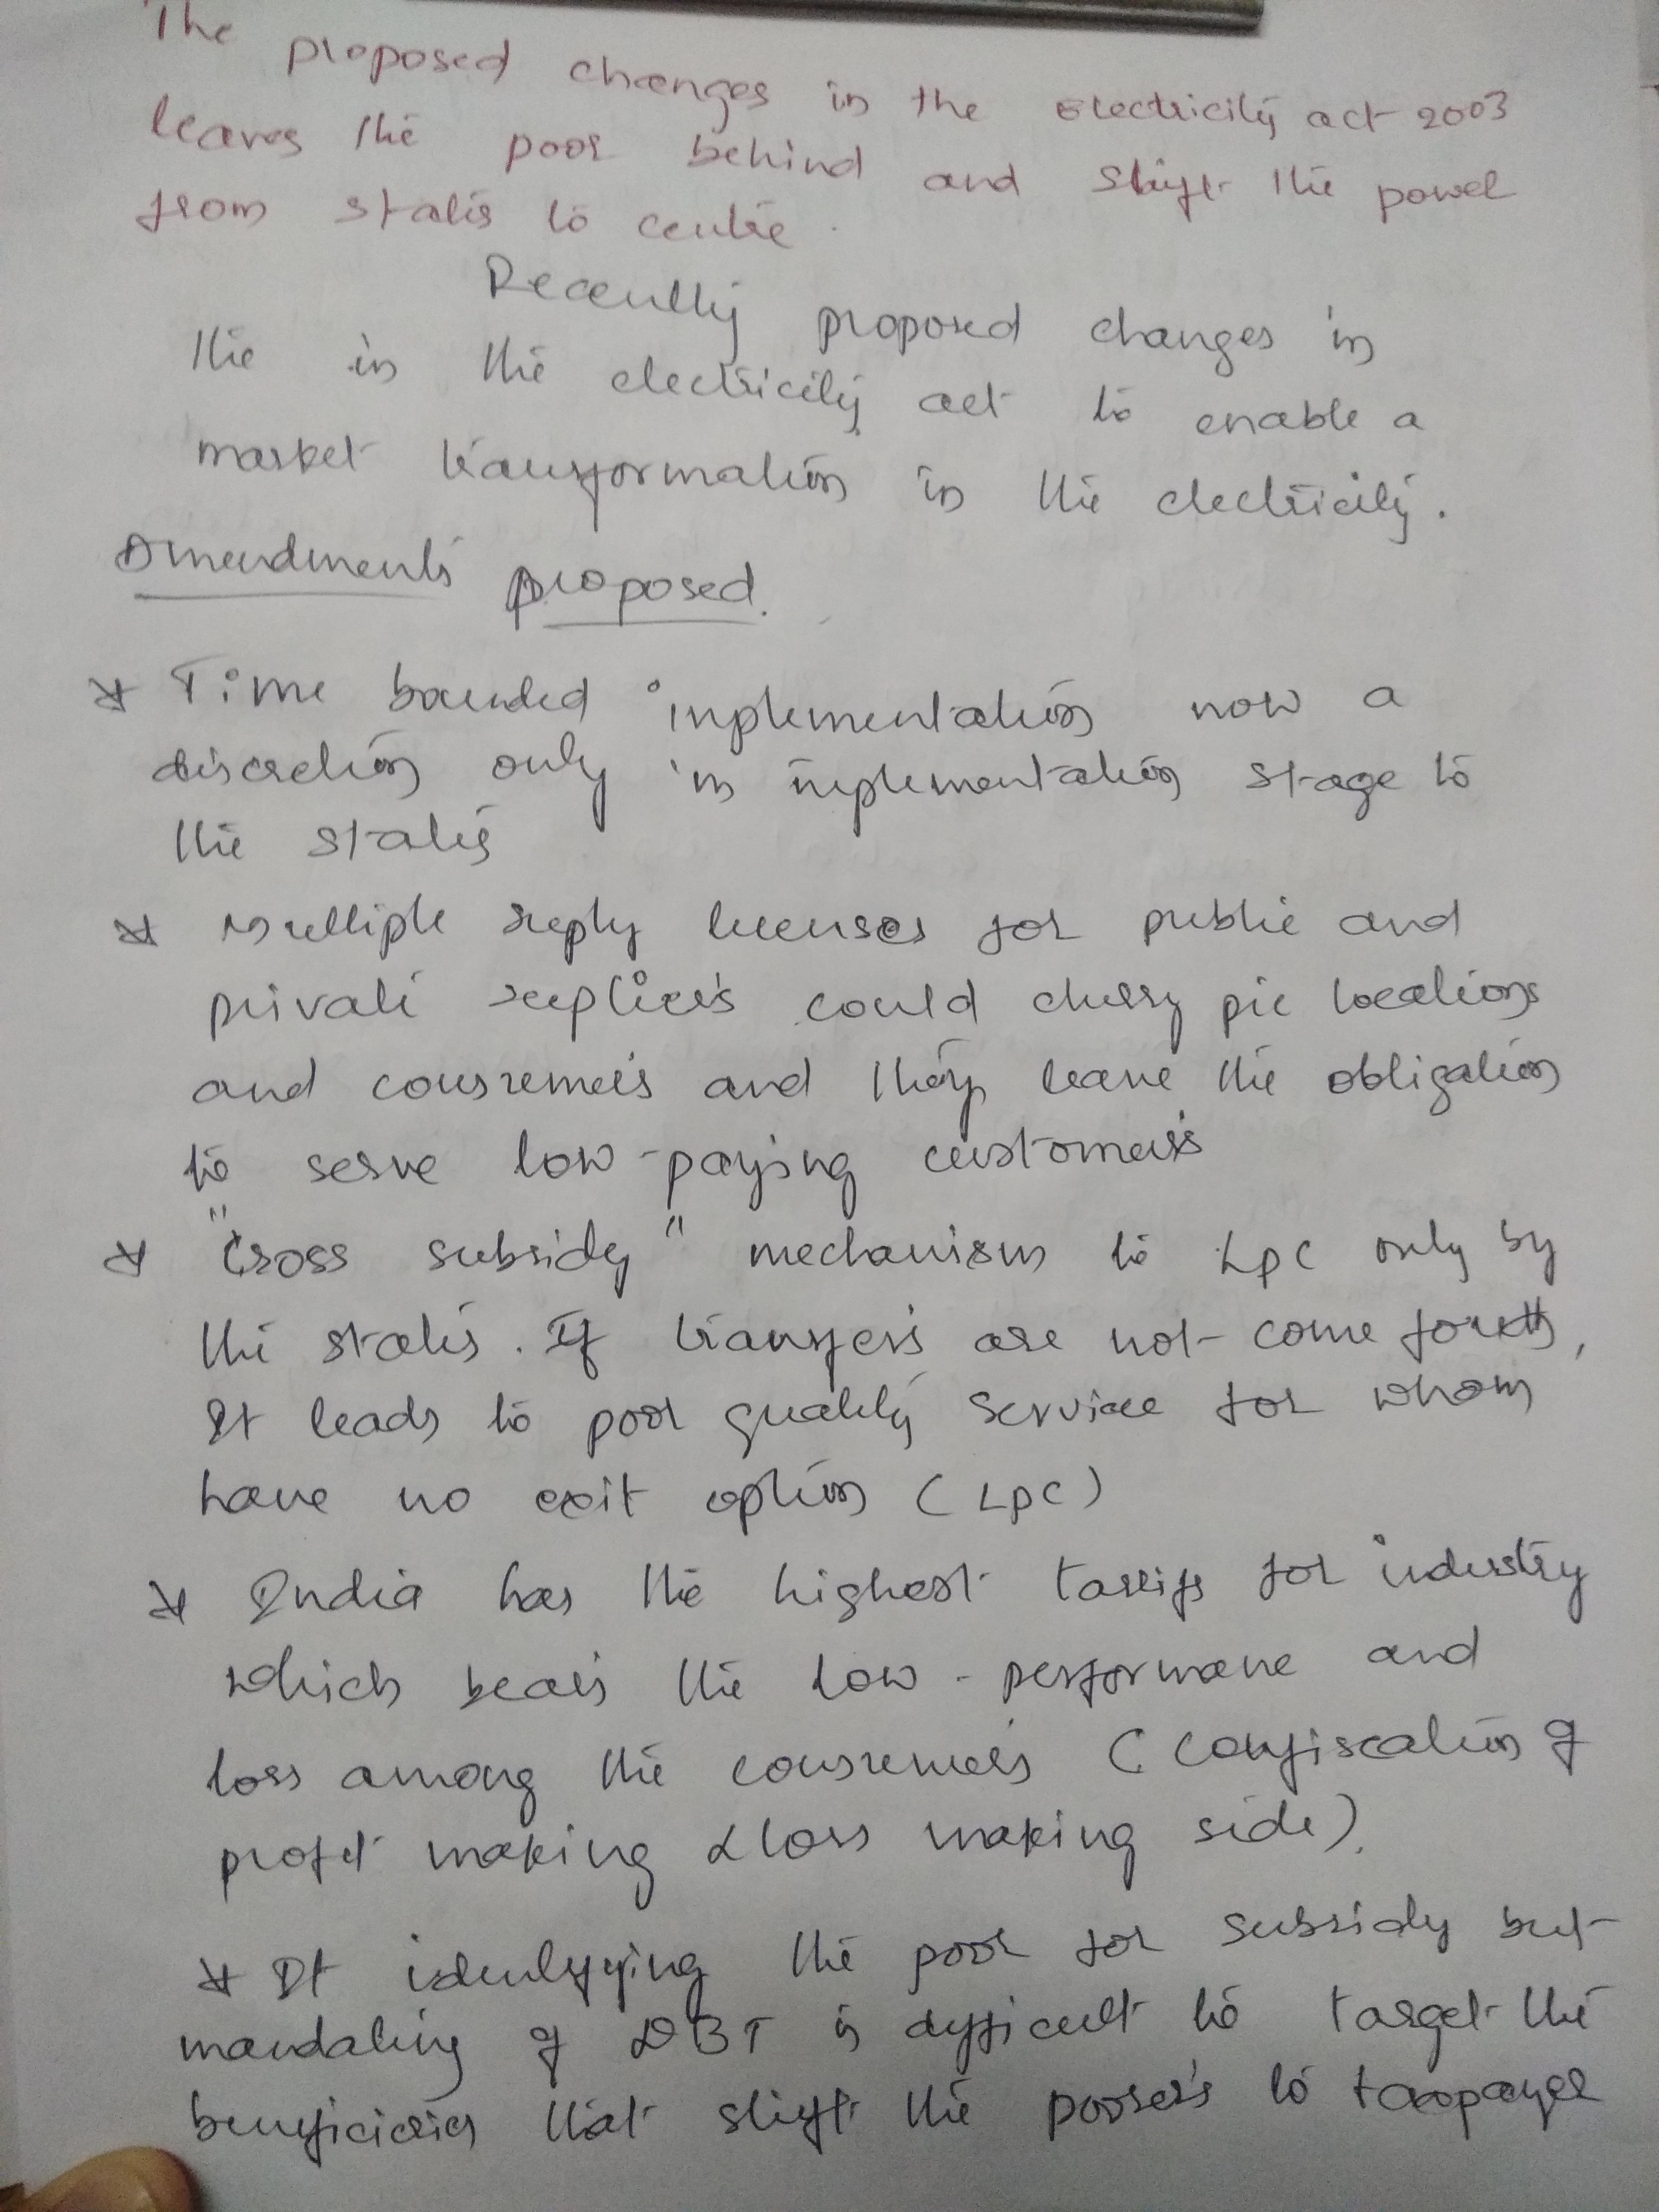 The proposed changes in the Electricity act 2003
leaves the poor behind and shift the power
from states to centre.
Recently proposed changes in
the in the electricity act to enable a
market transformation in the electricity.
Amendments proposed.
* Time bounded implementation now a
discretion only in implementation stage to
the states
* Multiple suply licenses for public and
private supliers could cherry pic locations
and consumers and they leave the obligation
to serve low-paying customers
* "Cross subsidy" mechanism to LPC only by
the states. If transfers are not come forth,
It leads to poor quality service for whom
have no exit option (LPC)
* India has the highest tariffs for industry
which bears the low-performane and
loss among the consumers (Confiscation of
profit making & loss making side).
* It identifying the poor for subsidy but
mandating of DBT is difficult to target the
beneficiaries that shift the poorers to taxpayer